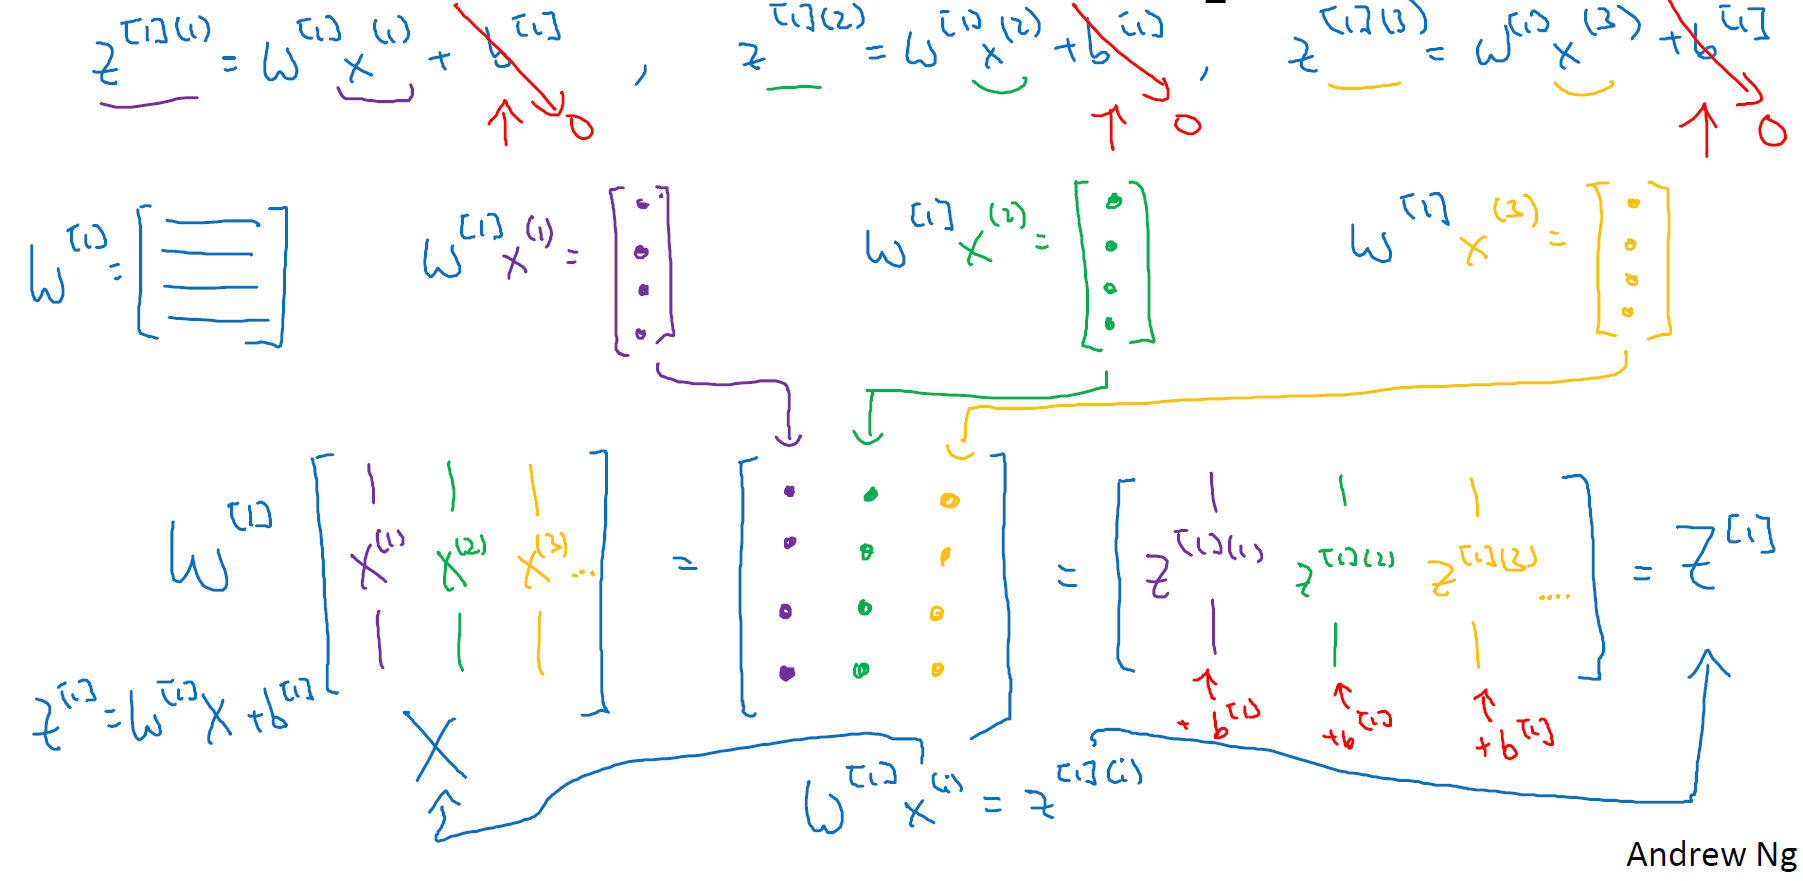 z^[1](1) = W^[1] x^(1) + b^[1] , z^[1](2) = W^[1] x^(2) + b^[1] , z^[1](3) = W^[1] x^(3) + b^[1]
↑ 0 ↑ 0 ↑ 0
W^[1] = [ ] W^[1] x^(1) = [ ] W^[1] x^(2) = [ ] W^[1] x^(3) = [ ]
W^[1] [ x^(1) x^(2) x^(3) ... ] = [ ] = [ z^[1](1) z^[1](2) z^[1](3) .... ] = Z^[1]
+ b^[1] + b^[1] + b^[1]
Z^[1] = W^[1] X + b^[1]
X
W^[1] x^(i) = z^[1](i)
Andrew Ng